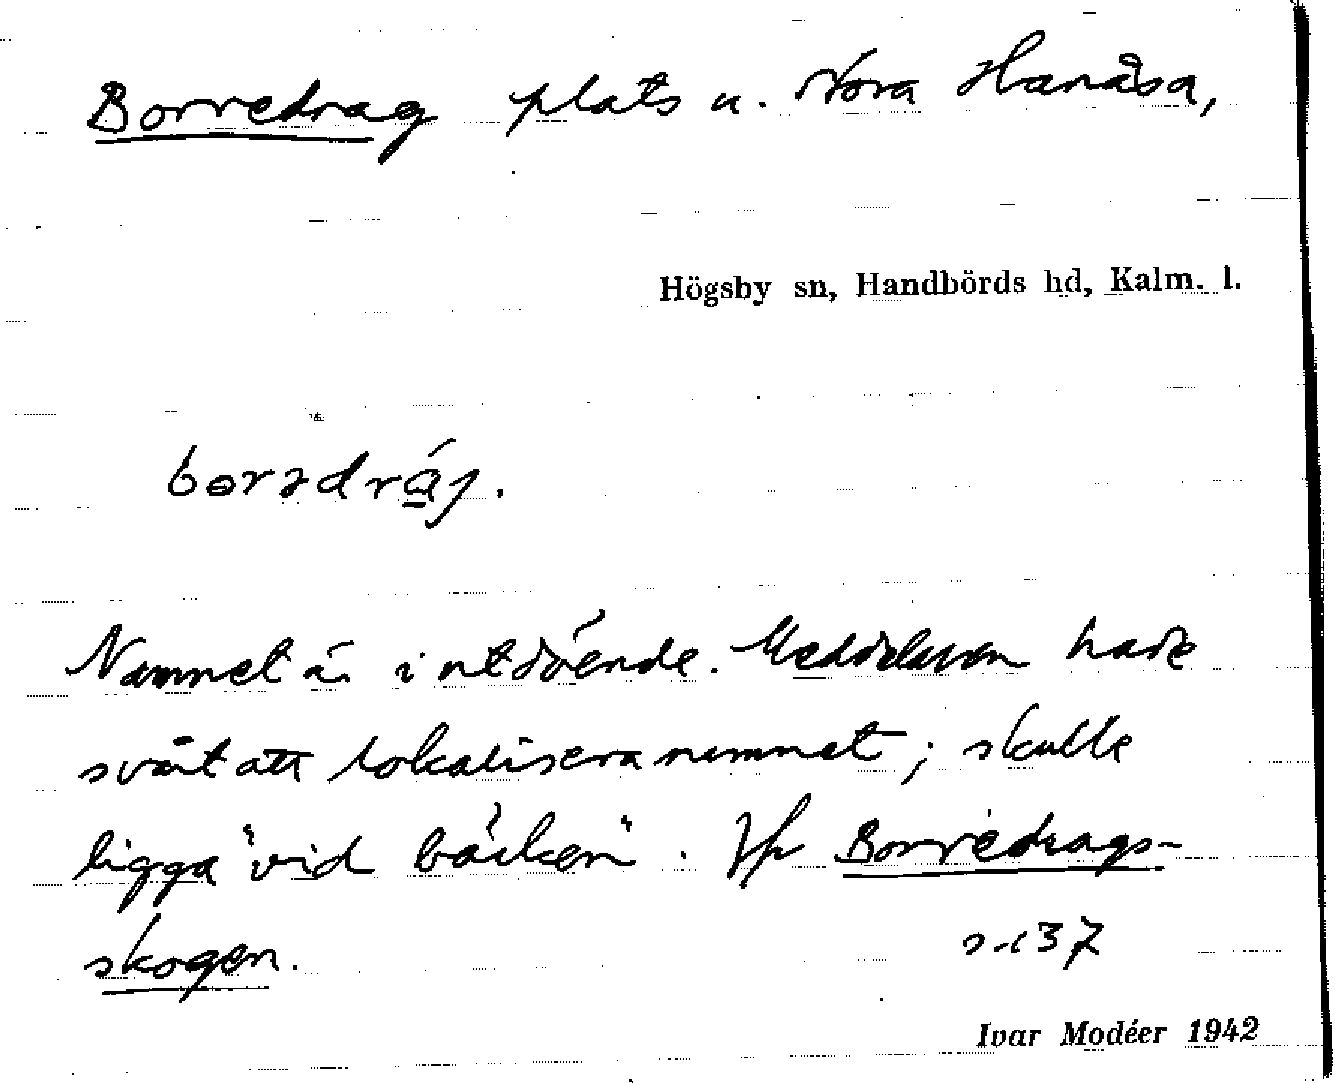 Borredrag plats u. Nora Hanåsa,
Högsby sn, Handbörds hd, Kalm. l.
borədráɡ.
Namnet är i utdöende. Meddelaren hade
svårt att lokalisera namnet; skulle
ligga "vid bäcken". Jfr Borredrags-
skogen.
s. 137
Ivar Modéer 1942